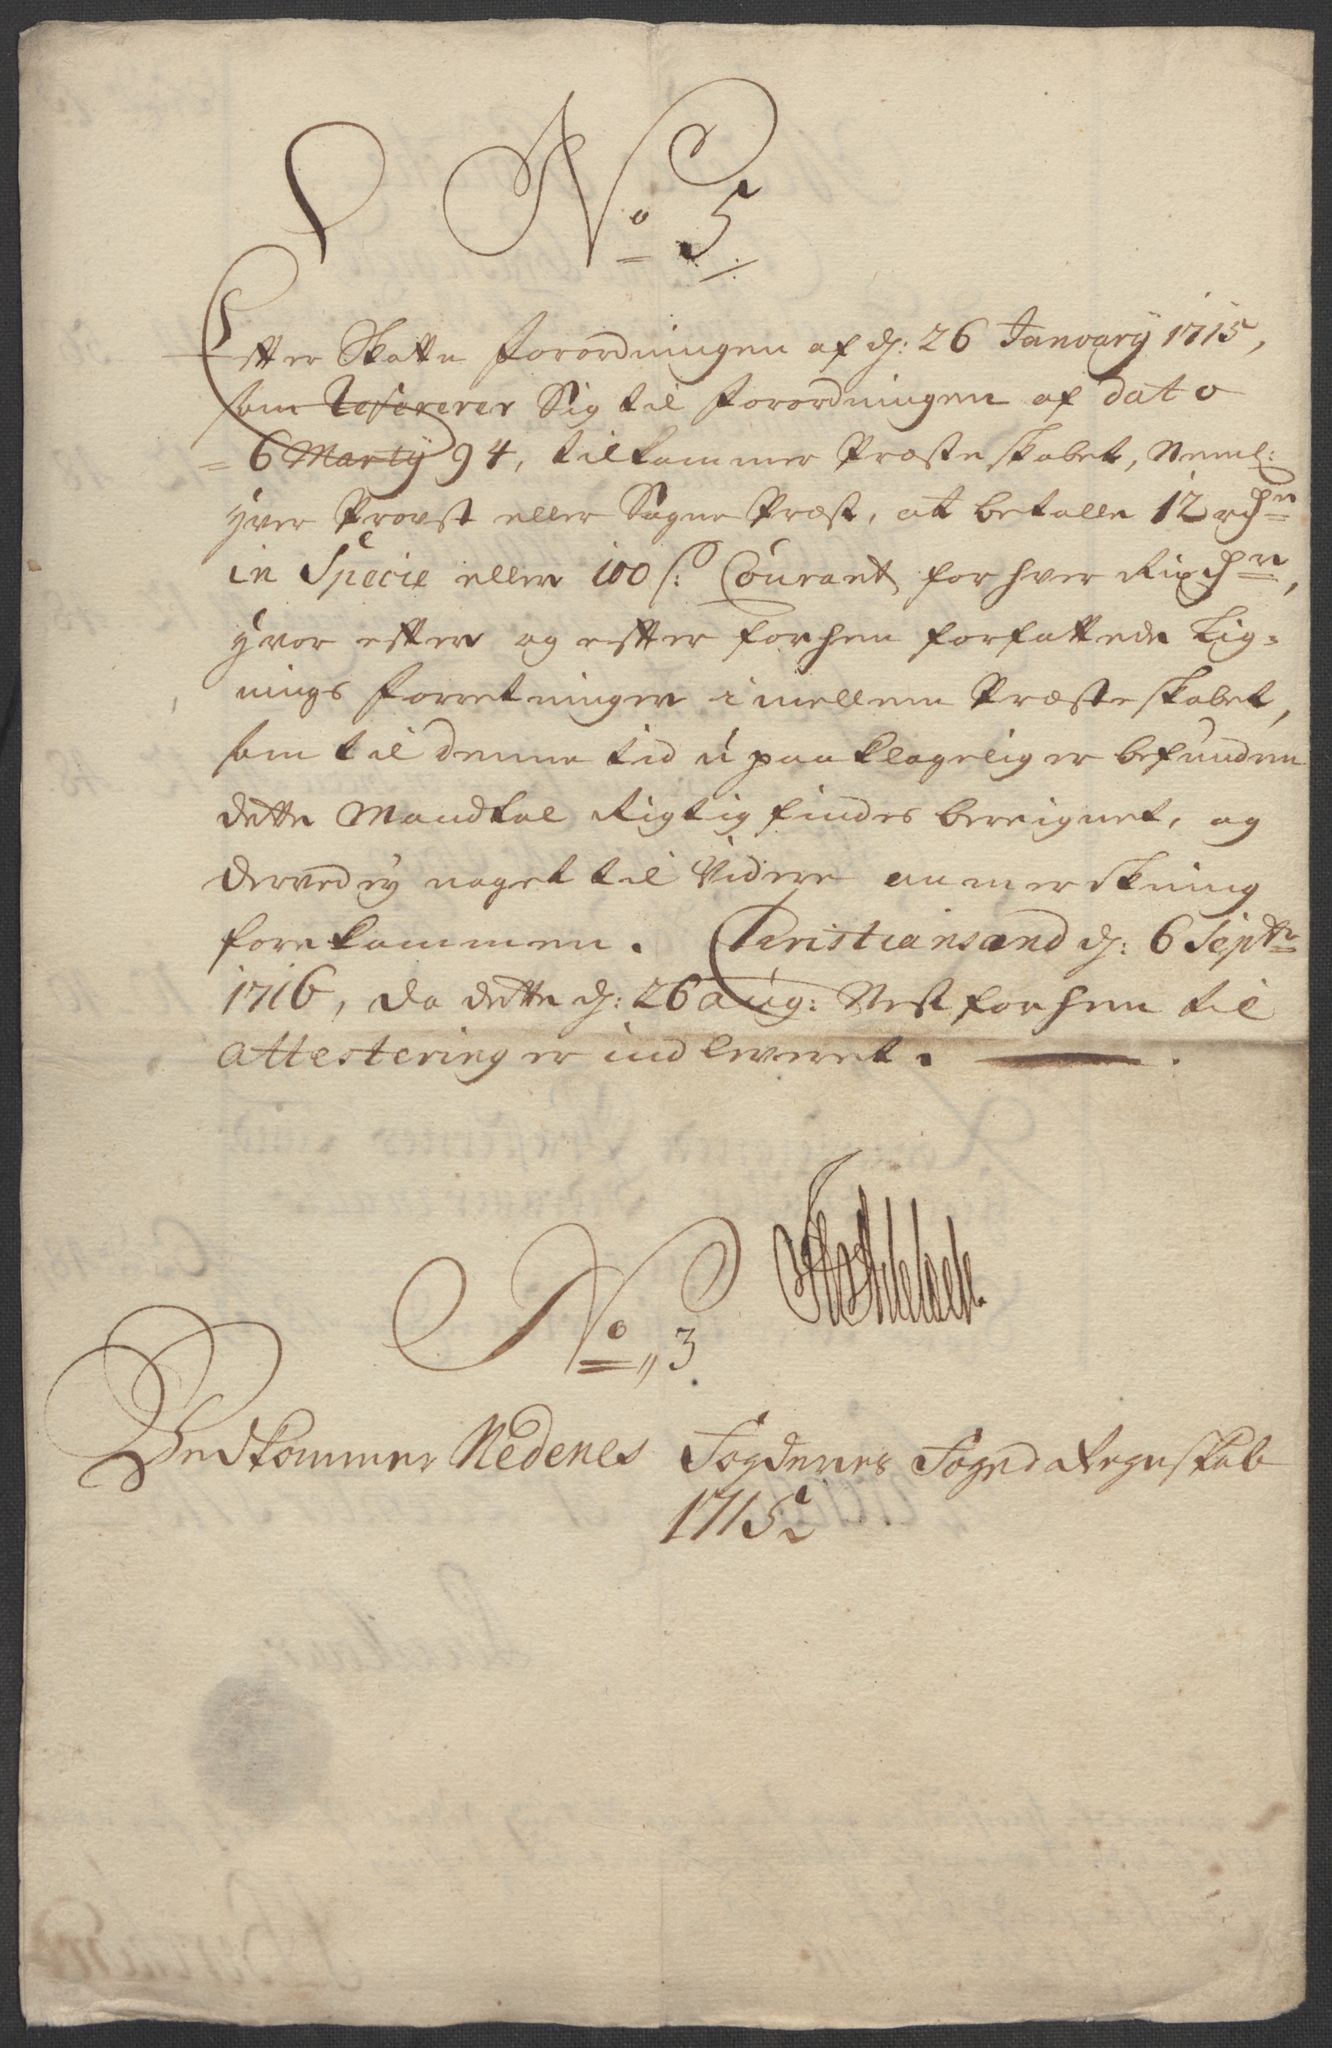 No 5
Efter Skatte forordningen af d: 26 January 1715,
som Refererer Sig til forordningen af dato
= 6 Marty 94, tilkommer Præsteskabet, Neml:
hver Provst eller Sogne Præst, at betalle 12 rdr
in Specie eller 100 s: Courant for hver Rixdr,
hvor efter og efter forhen forfattede Lig=
nings forretninger imellem Præsteskabet,
som til denne tid upaaklagelig er befunden
dette Mandtal Rigtig findes bereignet, og
derved ey noget til Videre anmerkning
forekommen. Christiansand d: 6 Septr
1716, da dette d: 26 aug: Nest forhen til
attestering er indleveret.
No 3
Vedkommer Nedenes Fogderies Foged Regnskab
1715